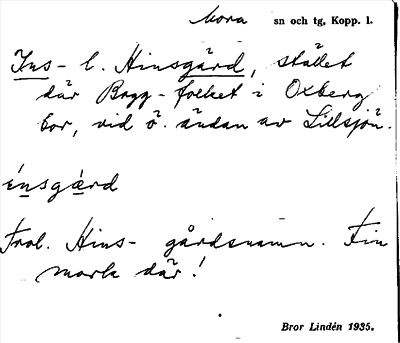 Mora sn och tg, Kopp. l.
Ins- l. Hinsgård, stället
där Bagg-folket i Oxberg
bor, vid ö. ändan av Lillsjön.
énsgård
Trol. Hins- gårdsnamn. Fin
mark där!
Bror Lindén 1935.